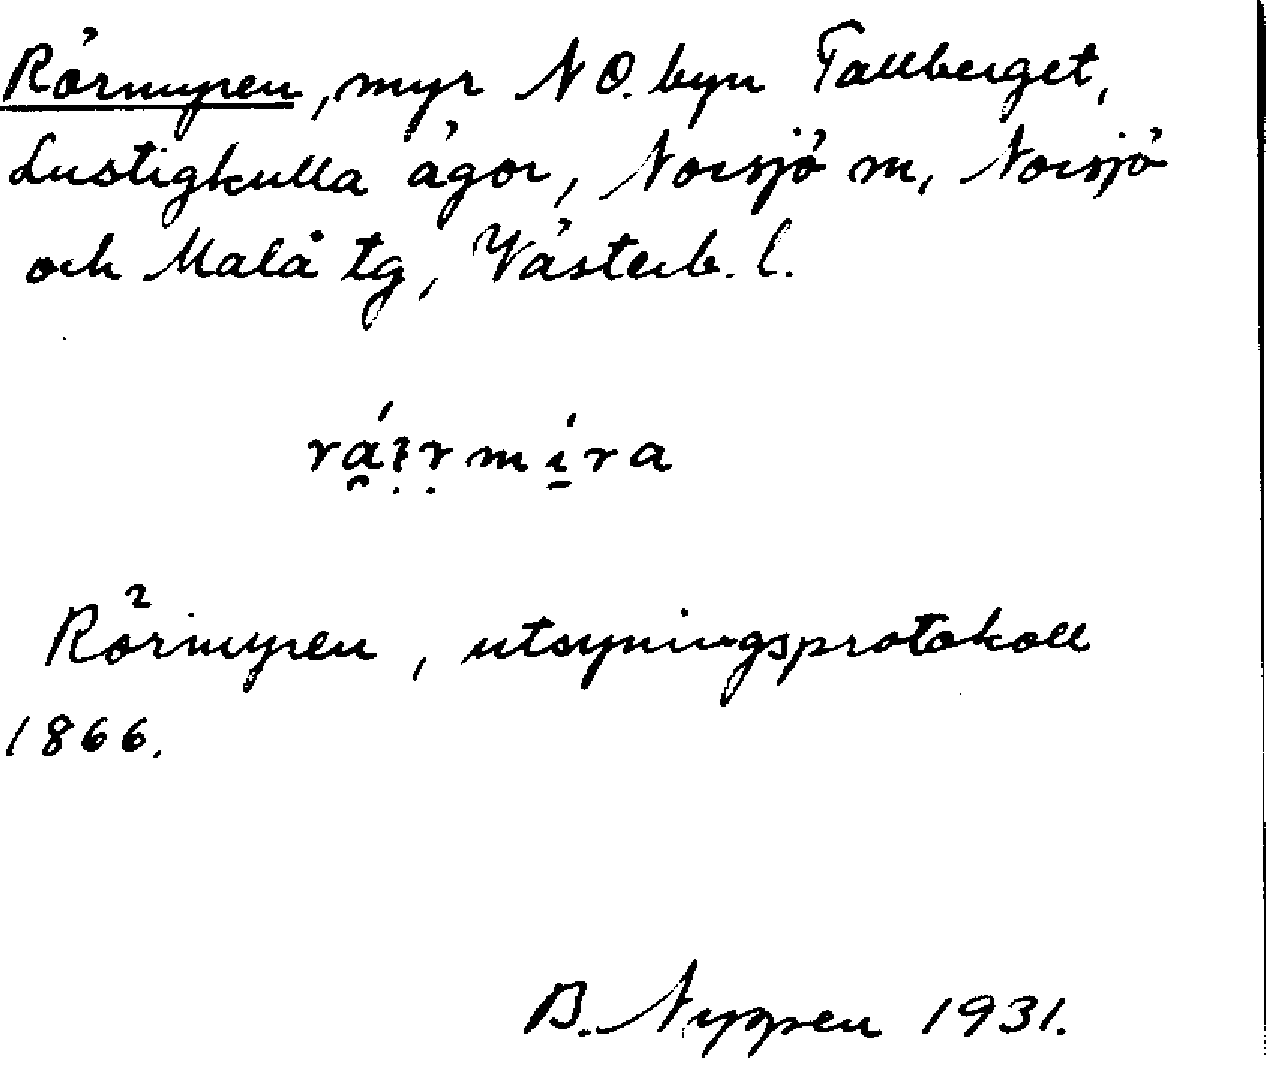 Rörmyren, myr NO. byn Tallberget,
Lustigkulla ägor, Norsjö m, Norsjö
och Malå tg, Västerb. l.
Rörmyren, utsyningsprotokoll
1866.
B. Nygren 1931.